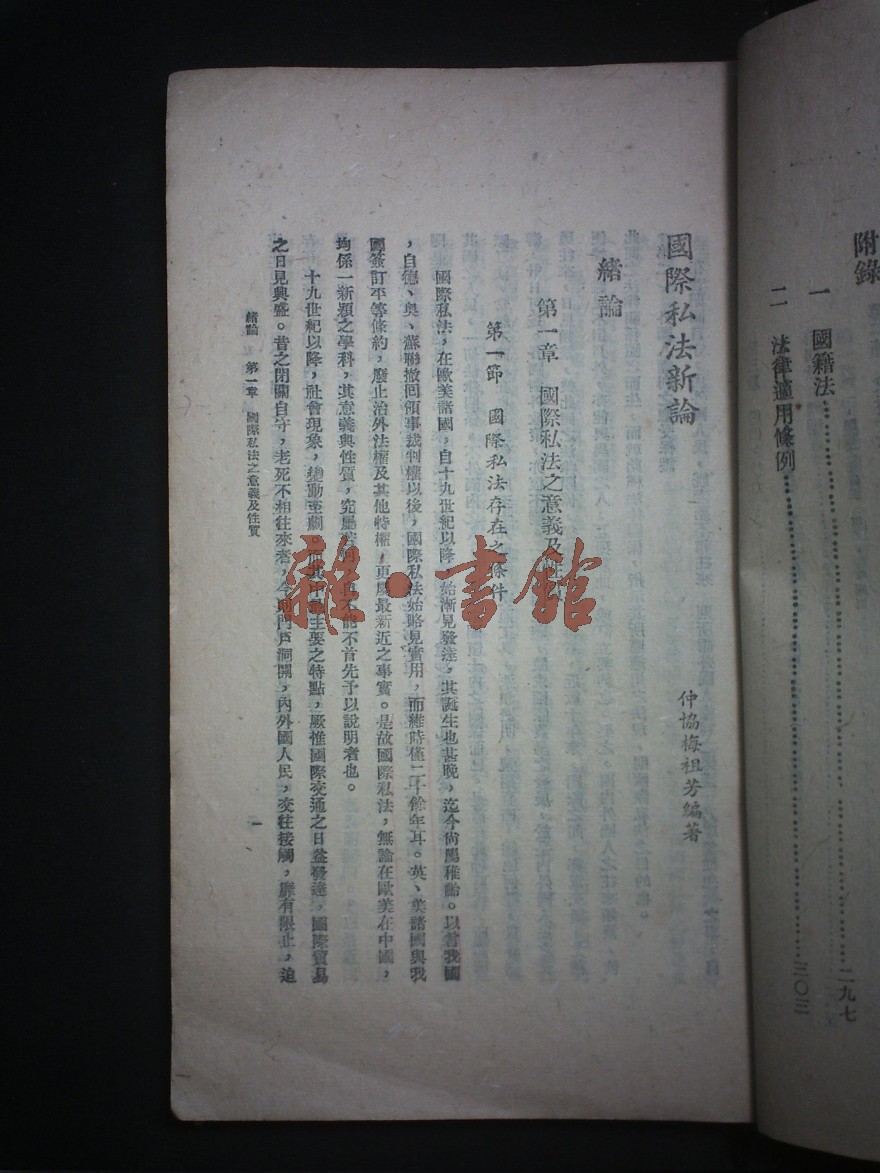 附錄
一　國籍法……………………二九七
二　法律適用條例……………………三〇三
國際私法新論
仲協梅祖芳編著
緒論
第一章　國際私法之意義及性
第一節　國際私法存在之條件
國際私法，在歐美諸國，自十九世紀以降，始漸見發達，其誕生也甚晚，迄今尙屬稚齡。以言我國
，自德、奧、蘇聯撤回領事裁判權以後，國際私法始略見實用，而維時僅二十餘年耳。英、美諸國與我
國簽訂平等條約，廢止治外法權及其他特權，更屬最新近之事實。是故國際私法，無論在歐美在中國，
均係一新穎之學科，其意義與性質，究屬若何，自不能不首先予以說明者也。
十九世紀以降，社會現象，變動至劇。而其中最主要之特點，厥惟國際交通之日益發達，國際貿易
之日見興盛。昔之閉關自守，老死不相往來者，今則門戶洞開，內外國人民，交往接觸，靡有限止，迨
緒論　第一章　國際私法之意義及性質
一
雜·書館